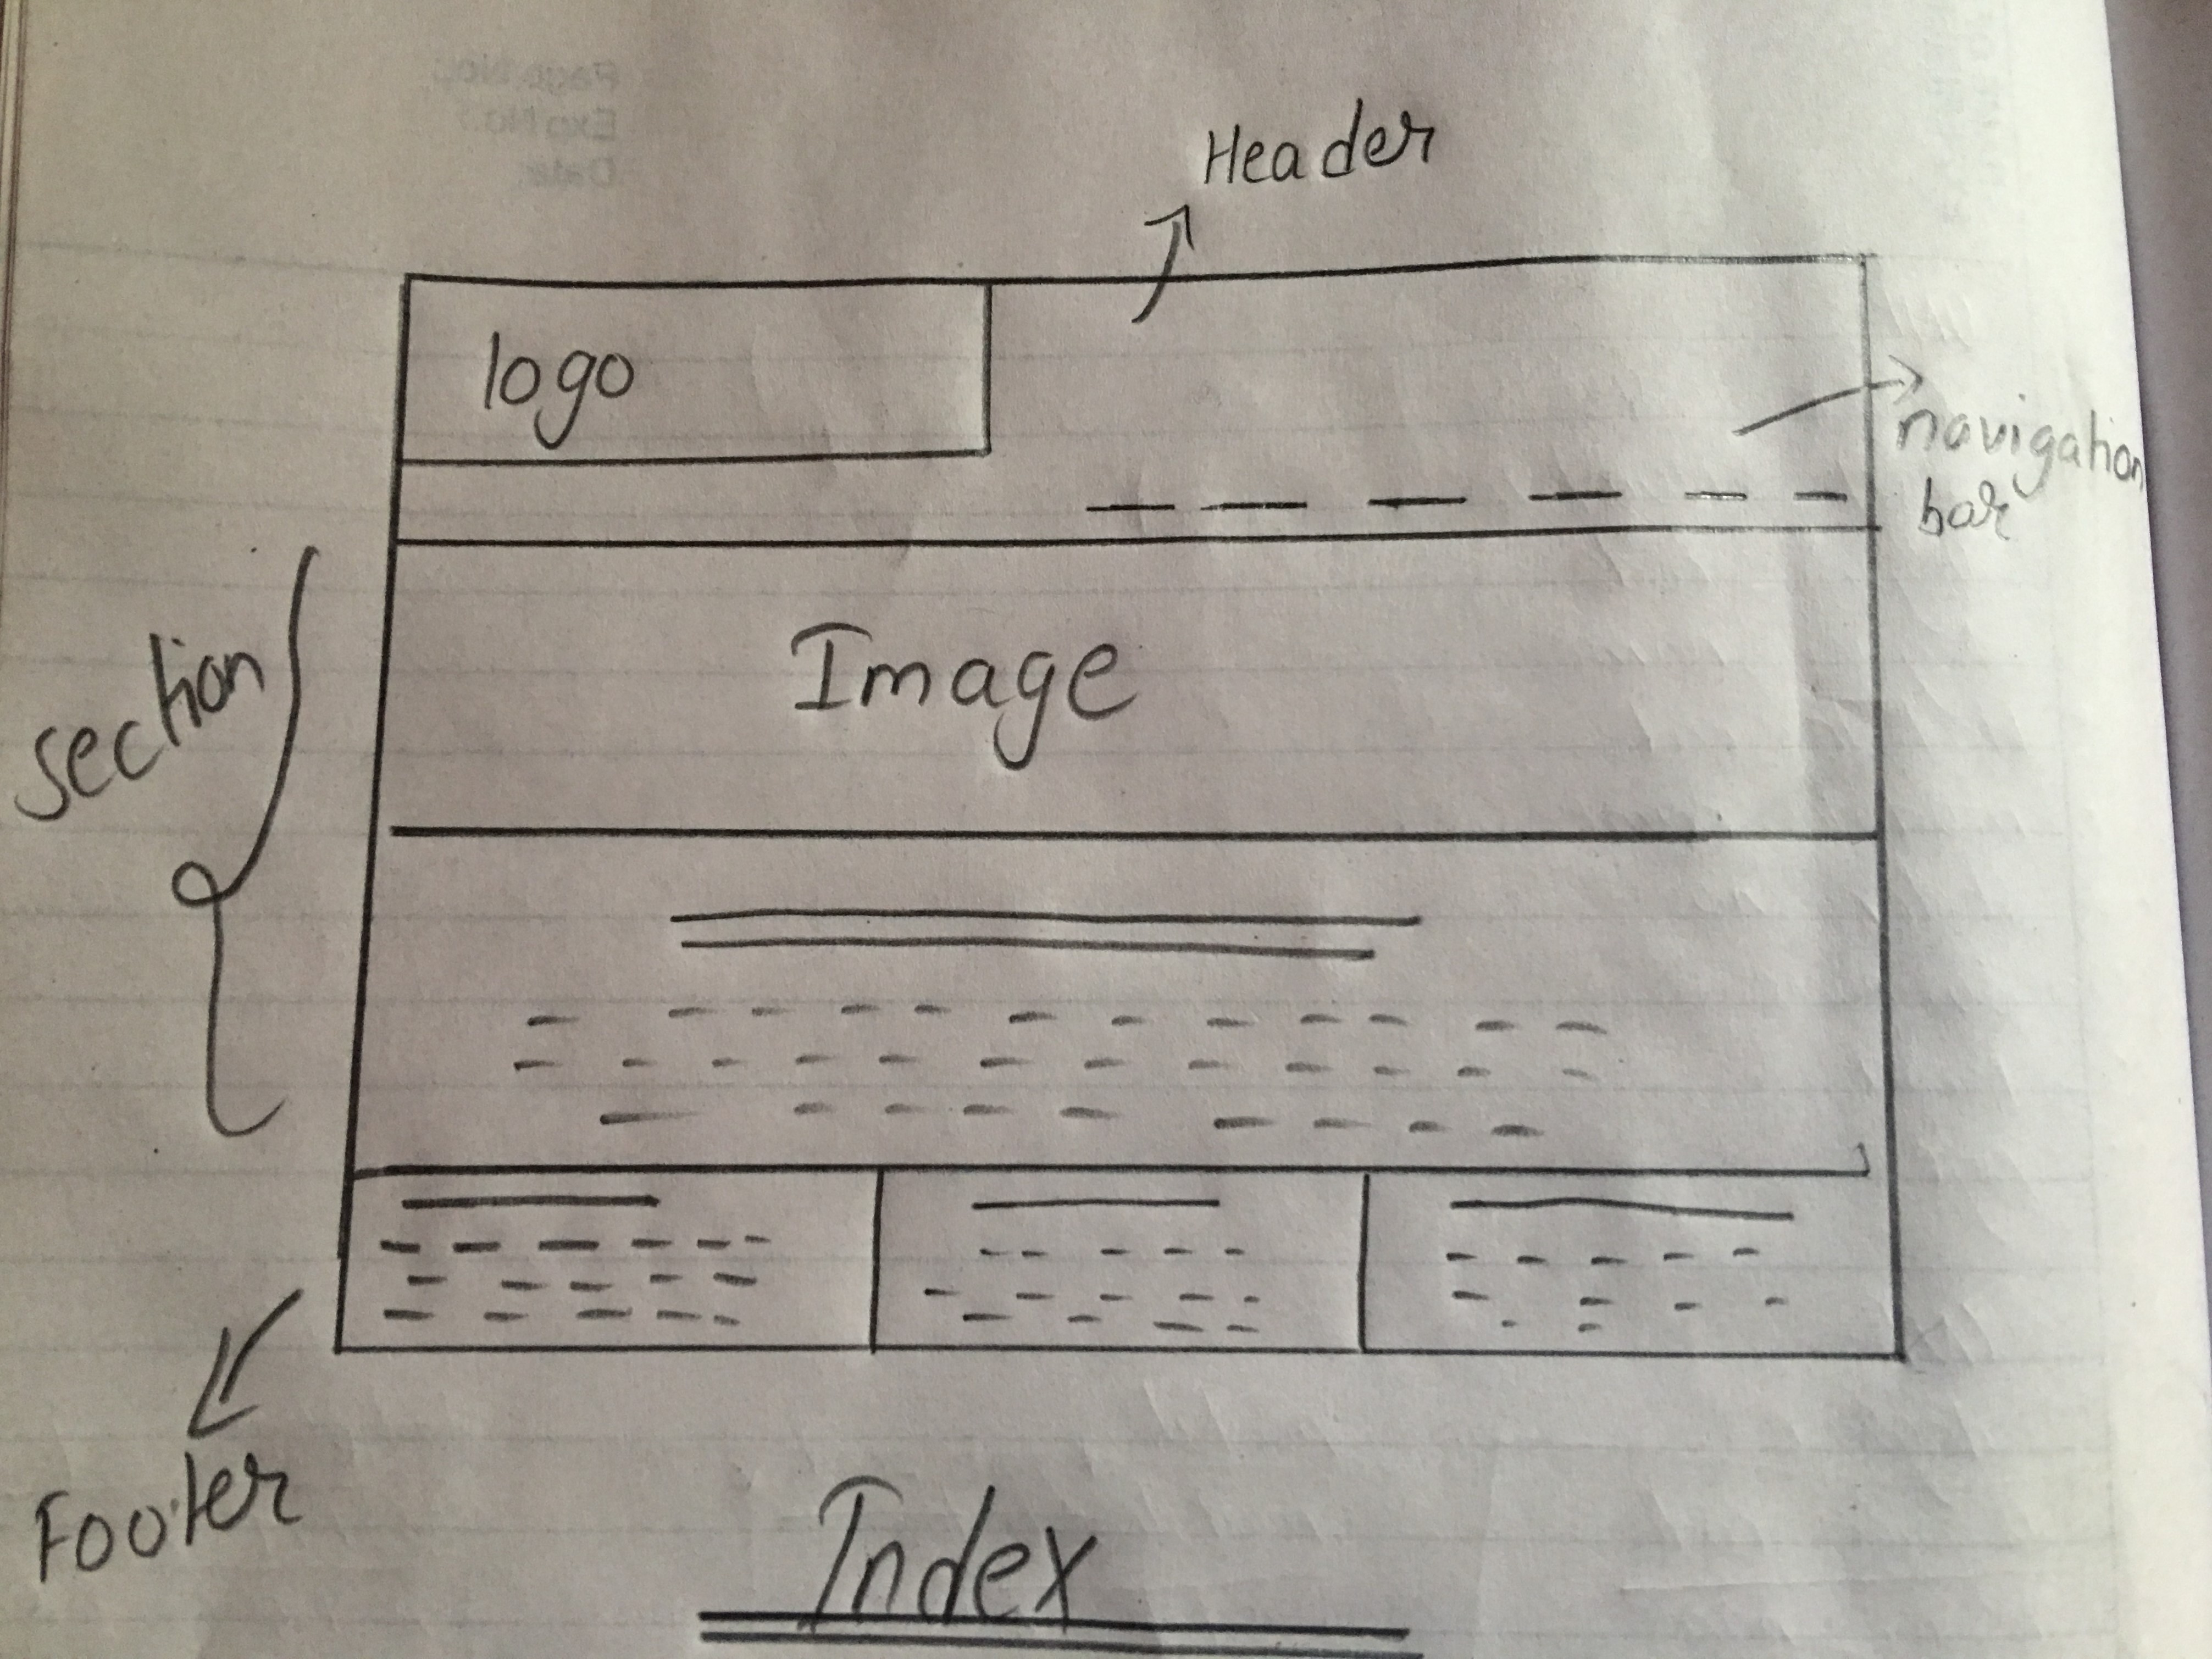 Page No.:
Exp No.:
Date:
Header
logo
navigation
bar
Image
section
Footer
Index